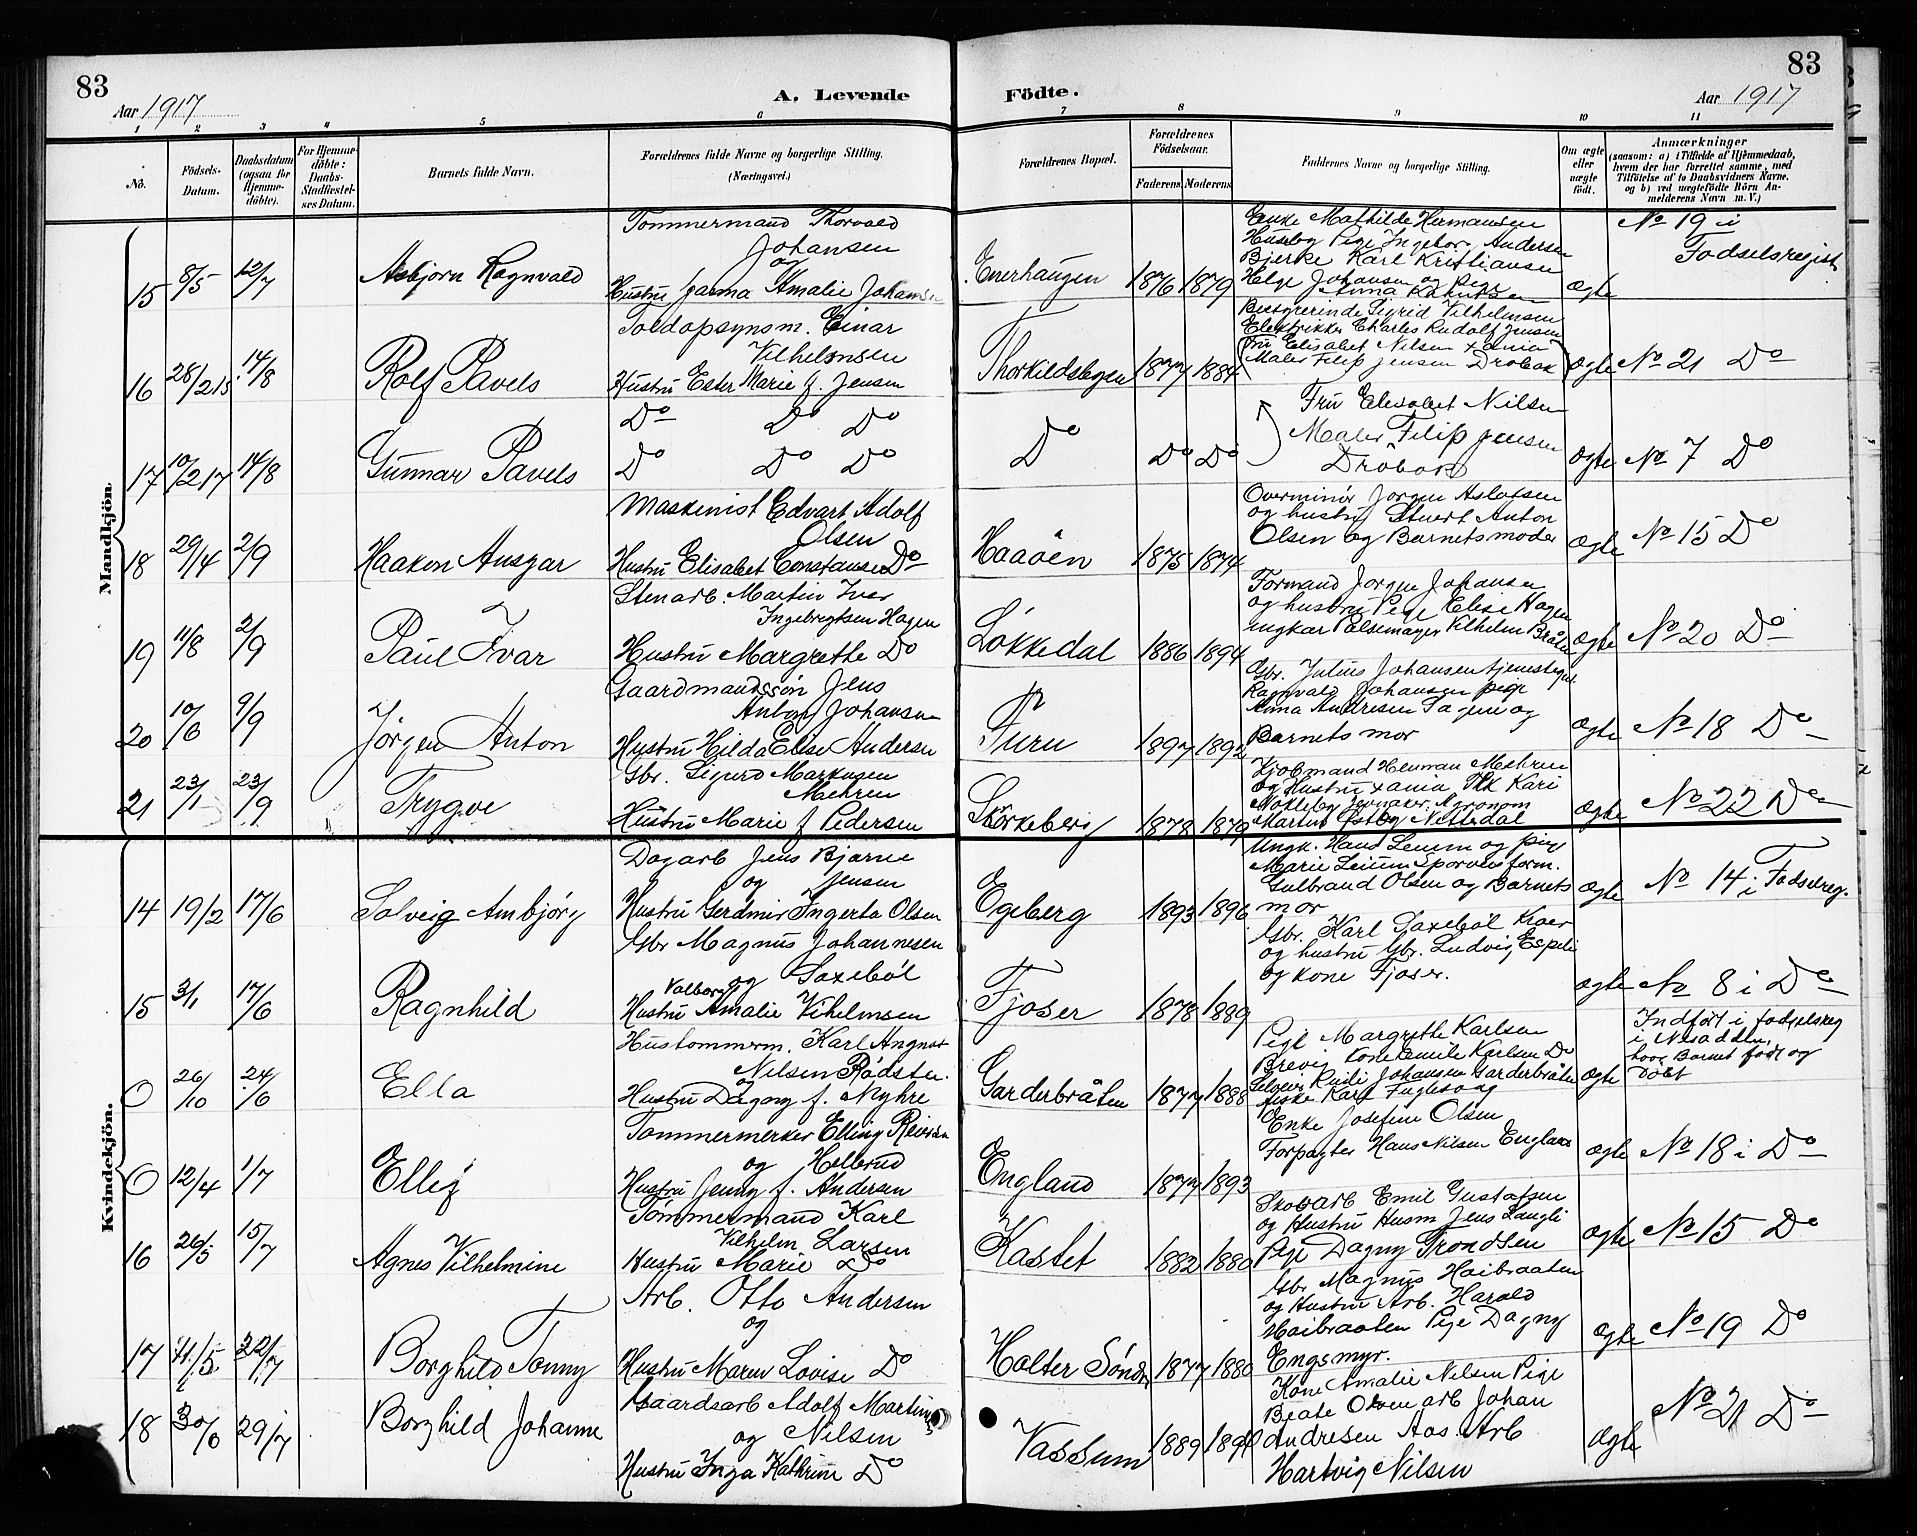 83
Aar 1917
A. Levende
Födte.
Aar 1917
83
1 2 3 4 5 6 7 8 9 10 11
No.
Födsels-
Datum.
Daabsdatum
(ogsaa for
Hjemme-
döbte).
For Hjemme-
döbte:
Daabs-
Stadfæstel-
ses Datum.
Barnets fulde Navn.
Forældrenes fulde Navne og borgerlige Stilling.
(Næringsvei.)
Forældrenes Bopæl.
Forældrenes
Födselsaar.
Faderens
Moderens
Faddernes Navne og borgerlige Stilling.
Om ægte
eller
uægte
födt.
Anmærkninger
(saasom: a) i Tilfælde af Hjemmedaab,
hvem der har forrettet samme, med
Tilföielse af to Daabsvidners Navne,
og b) ved uægtefödte Börn An-
melderens Navn m. V.)
Mandkjön.
15 8/5 12/7 Asbjørn Ragnvald
Tømmermand Thorvald
Johansen
og
Hustru Amalie Johansen
Enerhaugen 1876 1879
Enke Mathilde Hermansen
Huseby Pige Ingeborg Andersen
Bjerke Karl Kristiansen
Helge Johansen og Pige
Anna
ægte
No 19 i
Fødselsregist
16 28/2 15 14/8 Rolf Pavels
Toldopsynsm. Einar
Vilhelmsen
Hustru Ester Marie f. Jensen
Thorkildsbyen 1877 1884
Sigrid Vilhelmsen
Elektriker Charles Rudolf Jensen
Fru Elisabet Nilsen Xania
Maler Filip Jensen Drøbak
ægte No 21 Do
17 10/2 17 14/8 Gunnar Pavels
Do Do Do
Do Do Do
Do Do Do
Fru Elisabet Nilsen
Maler Filip Jensen
Drøbak
ægte No 7 Do
18 29/14 2/9 Haakon Ansgar
Maskinist Edvart Adolf
Olsen
Hustru Elisabet Constanse Do
Haaøen 1875 1874
Overminør Jørgen Aslaksen
og hustru Anton
Olsen og Barnets moder
ægte No 15 Do
19 11/8 2/9 Paul Ivar
Stenarb. Martin Iver
Ingebregtsen Hagen
Hustru Margrethe Do
Løkkedal 1886 1894
Formand Jørgen Johansen
og hustru Pige Elise Hagen
ungkar Vilhelm
ægte No 20 Do
20 10/6 9/9 Jørgen Anton
Gaardmandssøn Jens
Anton Johansen
Hustru Hilda Elise Andersen
Furu 1897 1892
Gbr. Julius Johansen
Ragnvald Johansen pige
Anna Andresen og
Barnets mor
ægte No 18 Do
21 23/1 23/9 Trygve
Gbr. Sigurd Markusen
Mehren
Hustru Marie f Pedersen
Skorkeberg 1878 1879
Kjøbmand Herman Mehren
og Hustru Xania Kari
Agronom
Martin Østby Nittedal
ægte No 22 Do
Kvindekjön.
14 19/2 17/6 Solveig Ambjørg
Dagarb Jens Bjarne
og Jensen
Hustru Ingerta Olsen
Egeberg 1893 1896
Ungk. Hans og pige
Marie
Gulbrand Olsen og Barnets
mor
ægte No 14 i Fødselreg.
15 3/1 17/6 Ragnhild
Gbr Magnus Johannesen
og Saxebøl
Valborg
Hustru Amalie Vilhelmsen
Fjøser 1878 1889
Gbr. Karl Saxebøl Kroer
og hustru Gbr. Ludvig Espeli
og kone Fjøser.
ægte No 8 i Do
0 26/10 24/6 Ella
Hustømmerm. Karl
Nilsen Rødsten
og
Hustru Dagny f. Myhre
Garderbråten 1877 1888
Pige Margrethe Karlsen
Brevig Kone Emilie Karlsen Do
Johansen Garderbråten
Karl Fuglesang
ægte
Indført i fødselsreg
i Nesodden,
hvor Barnet født og
døbt
0 12/4 1/7 Elly
Tømmermerker Elling
og Hellerud
Hustru Jenny f. Andersen
England 1877 1893
Enke Josefine Olsen
Forpagter Hans Nilsen England
ægte No 18 i Do
16 26/5 15/7 Agnes Vilhelmine
Tømmermand Karl
Vilhelm Larsen
Hustru Marie Do
Kastet 1882 1880
Skovarb Emil Gustafsen
og Hustru Husm Jens Langli
Pige Dagny Trondsen
ægte No 15 Do
17 22/7 Borghild Tonny
Arb. Otto Andersen
og
Hustru Maren Lovise Do
Holter Søndre 1877 1880
Gbr. Magnus Haibraaten
og Hustru Arb. Harald
Haibraaten Pige Dagny
Engsmyr.
ægte No 19 Do
18 30/6 29/7 Borghild Johanne
Gaardsarb Adolf Martin
og Nilsen
Hustru Inga Kathrine Do
Vassum 1889
Kone Amalie Nilsen Pige
Beate Olsen arb Johan
Andresen Aas. Arb
Hartvig Nilsen
ægte
No 21 Do